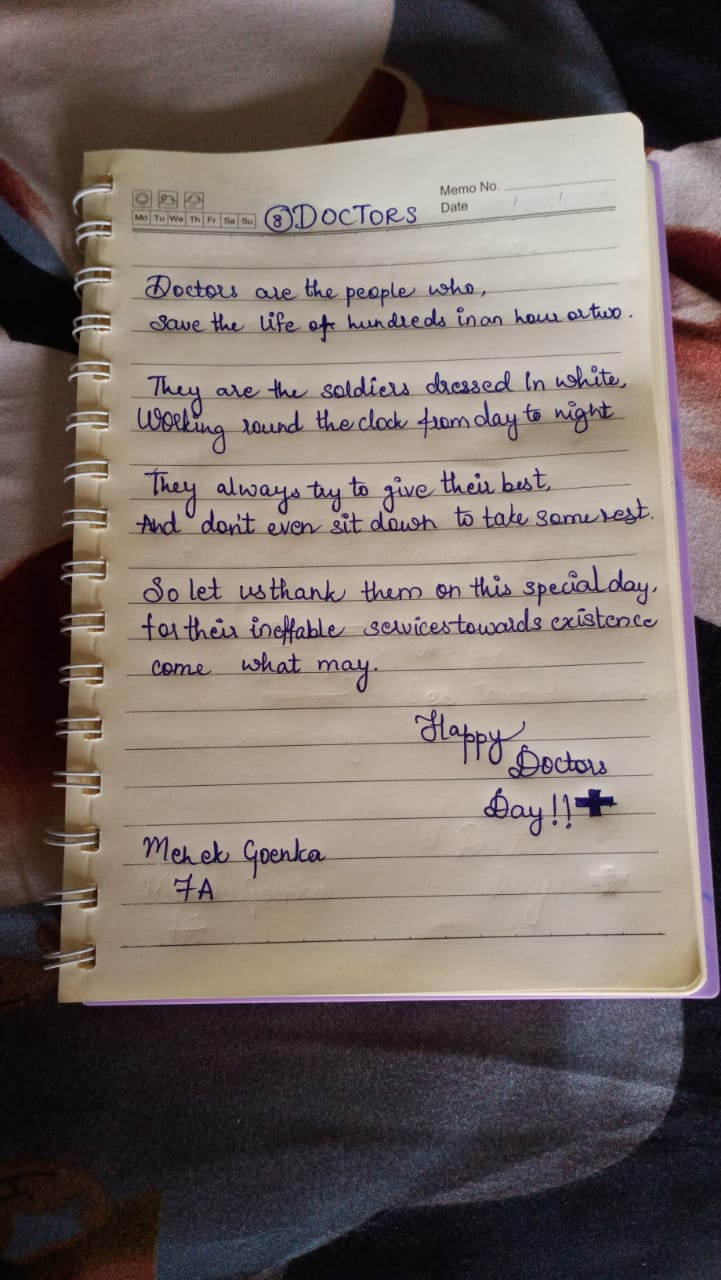 Memo No.
Mo Tu We Th Fr Sa Su
Date / /
⑧ DOCTORS
Doctors are the people who,
save the life of hundreds in an hour or two.
They are the soldiers dressed in white,
Working round the clock from day to night
They always try to give their best,
And don't even sit down to take some rest.
So let us thank them on this special day,
for their ineffable services towards existence
come what may.
Happy
Doctors
Day!!
Mehek Goenka
7A